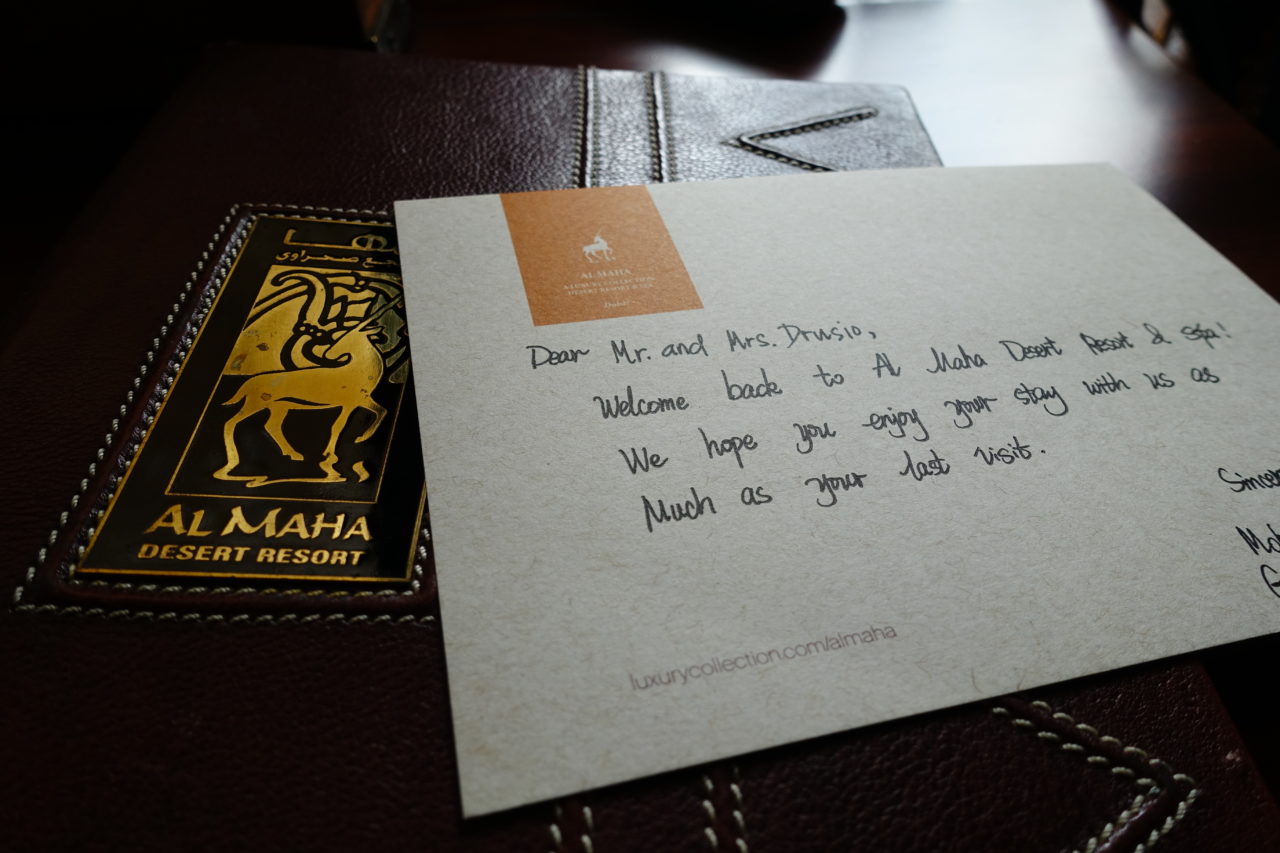 مجمع صحراوي
AL MAHA
DESERT RESORT
AL MAHA
A LUXURY COLLECTION
DESERT RESORT & SPA
Dubai
Dear Mr. and Mrs. Drusio,
Welcome back to Al Maha Desert Resort & Spa!
We hope you enjoy your stay with us as
Much as your last visit.
Sincer
luxurycollection.com/almaha